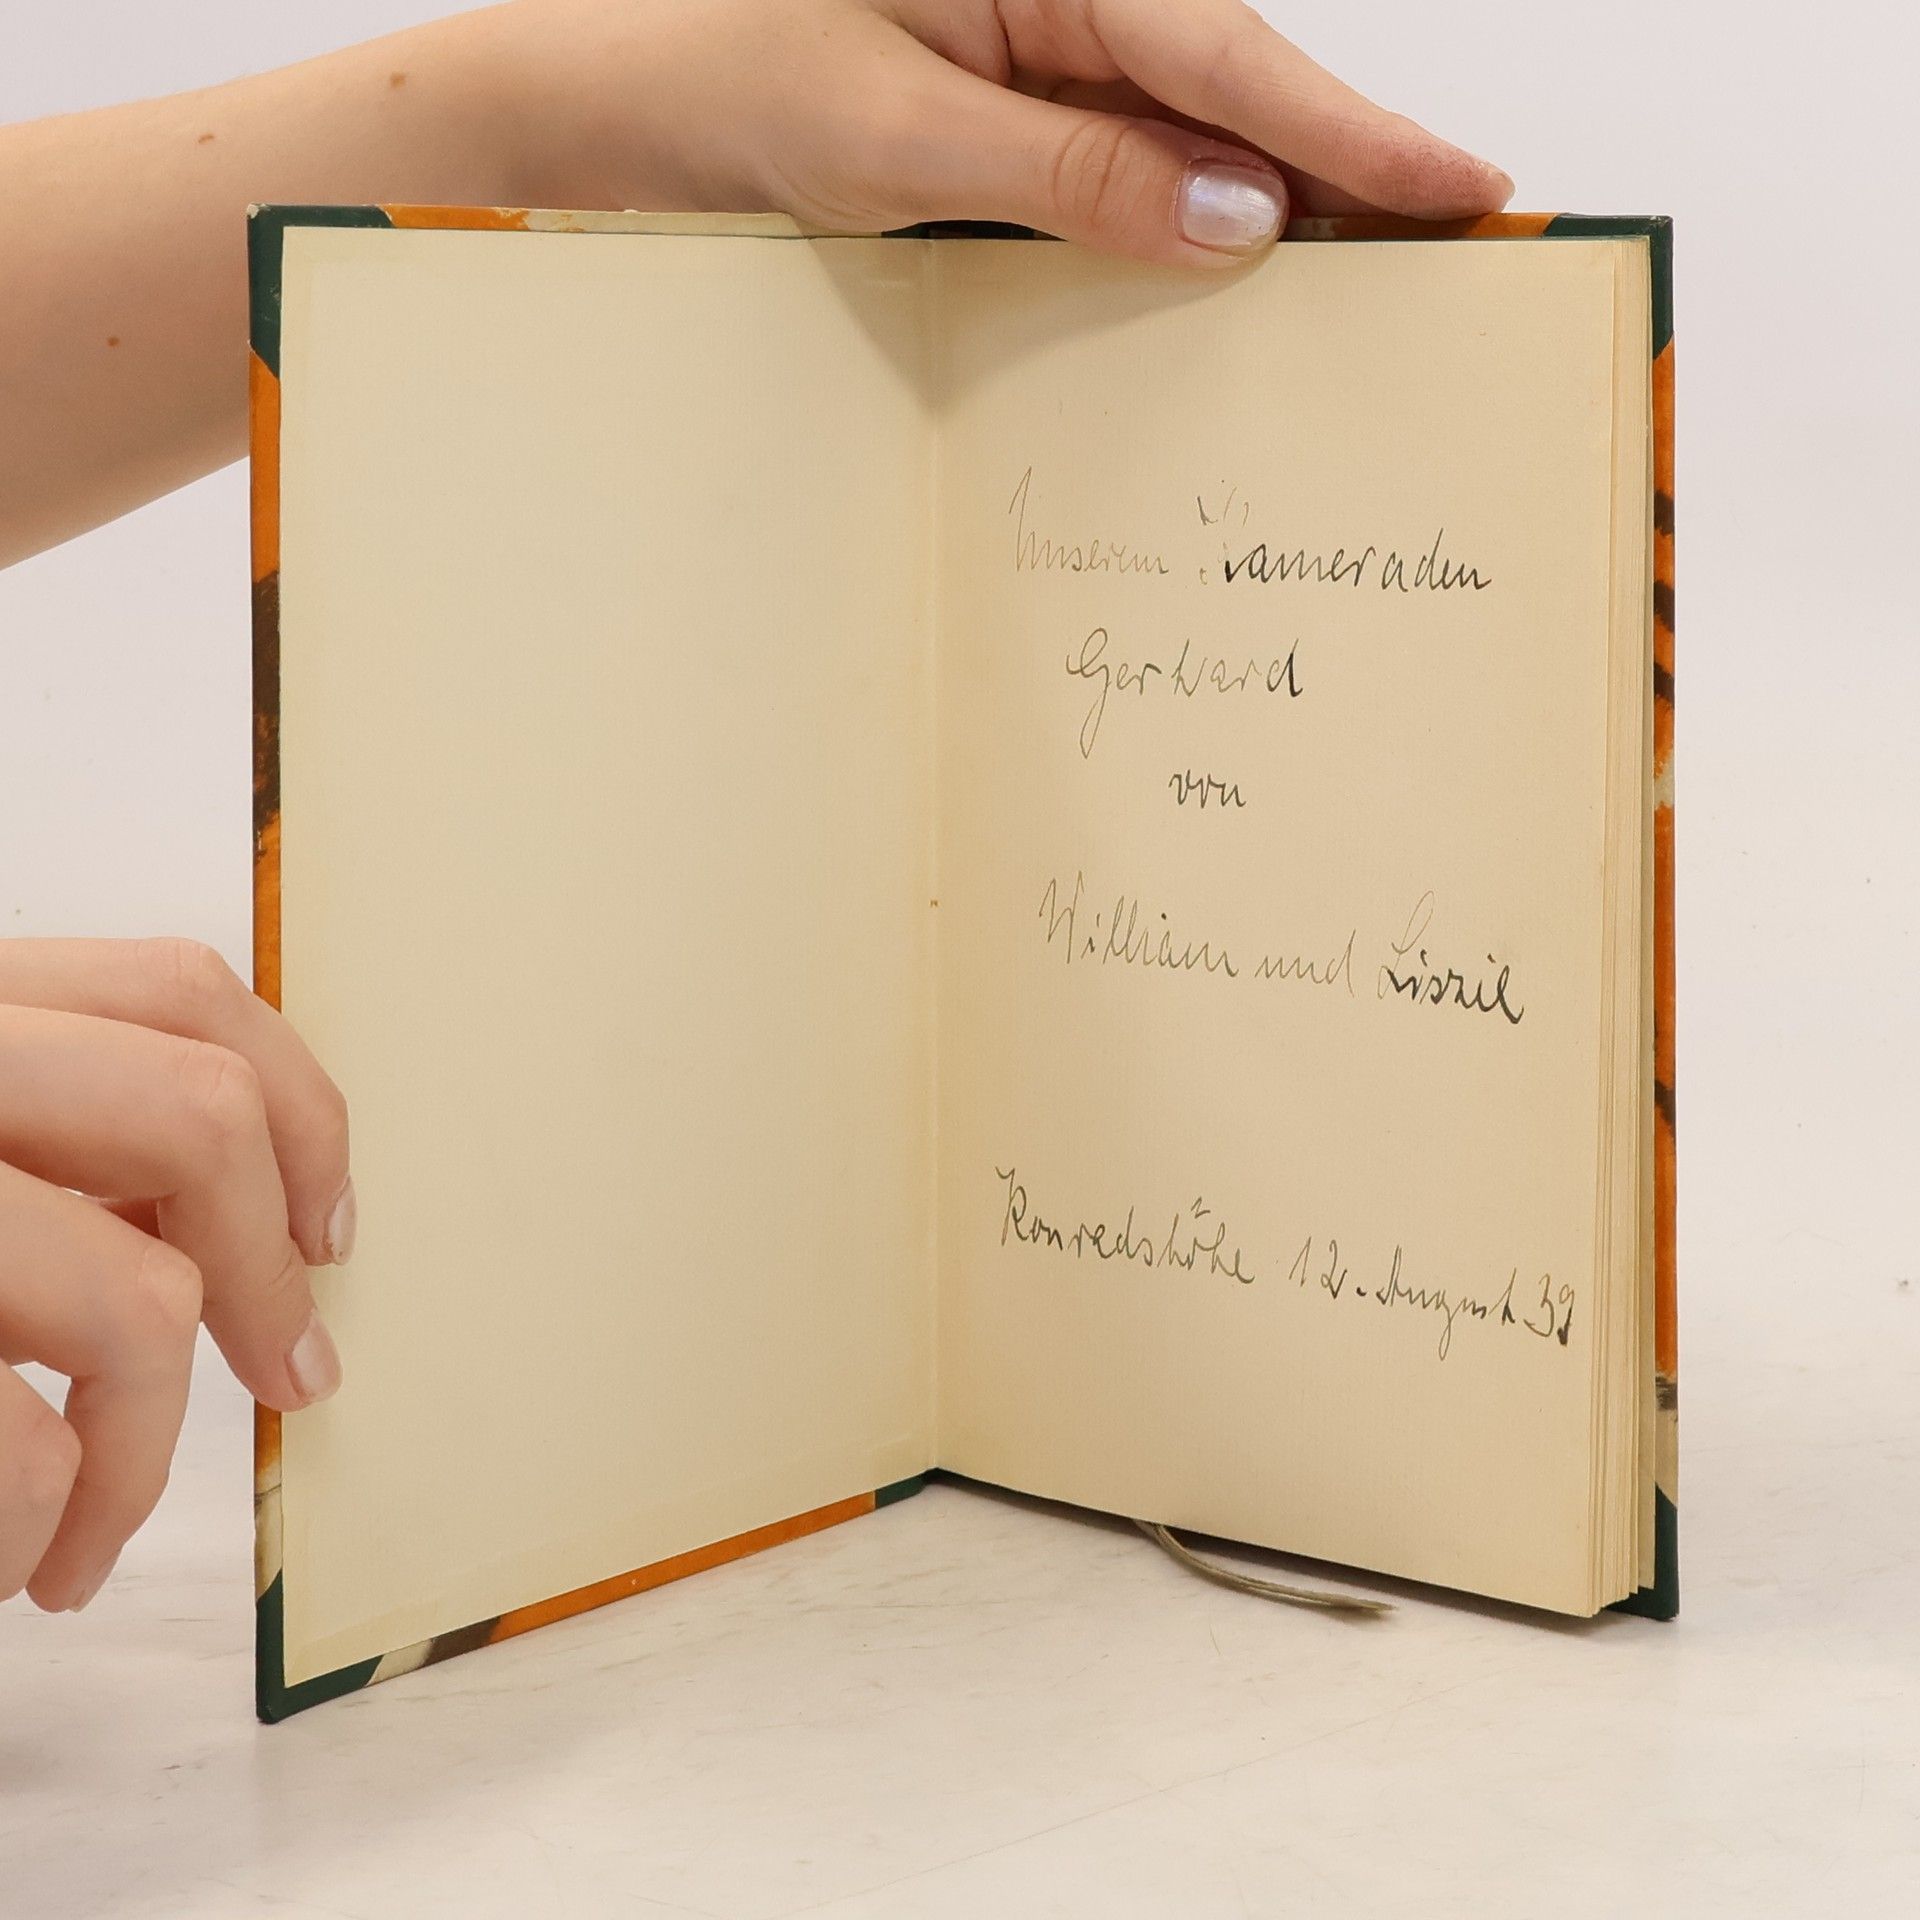 Unserem Kameraden
Gerhard
von
William und
Konradshöhe 12. August 39